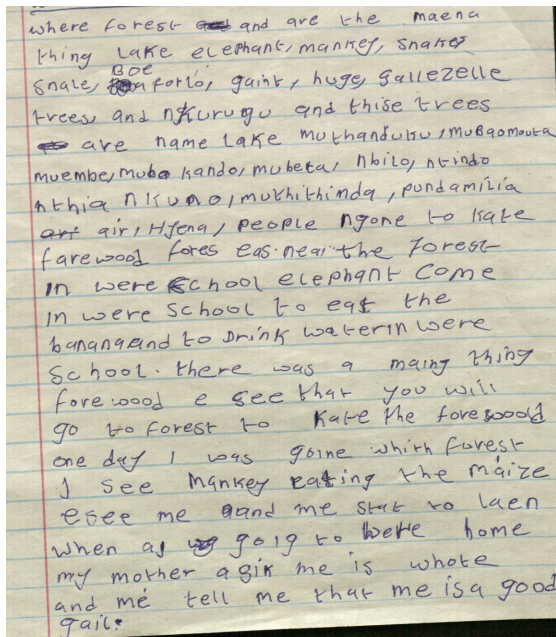 where forest and are the maena
thing Lake elephant, mankey, snakes
snale, BOE forlo, gaint, huge, gallezelle
trees and nkurugu and thise trees
are name Lake muthanduku, mubaomouta
muembe, muba kando, mubeta, nbilo, ntindo
nthia nkuno, muthithinda, pundamilia
air, Hfena, people ngone to kate
farewood fores eas. near the forest
in were school elephant come
in were school to eat the
bananaand to Drink waterin were
school. there was a maing thing
forewood e see that you will
go to forest to kate the forewoold
one day I was goine whith forest
I see mankey eating the maize
esee me and me stat to laen
when as goig to were home
my mother agin me is whote
and me tell me that me isa good
gail.